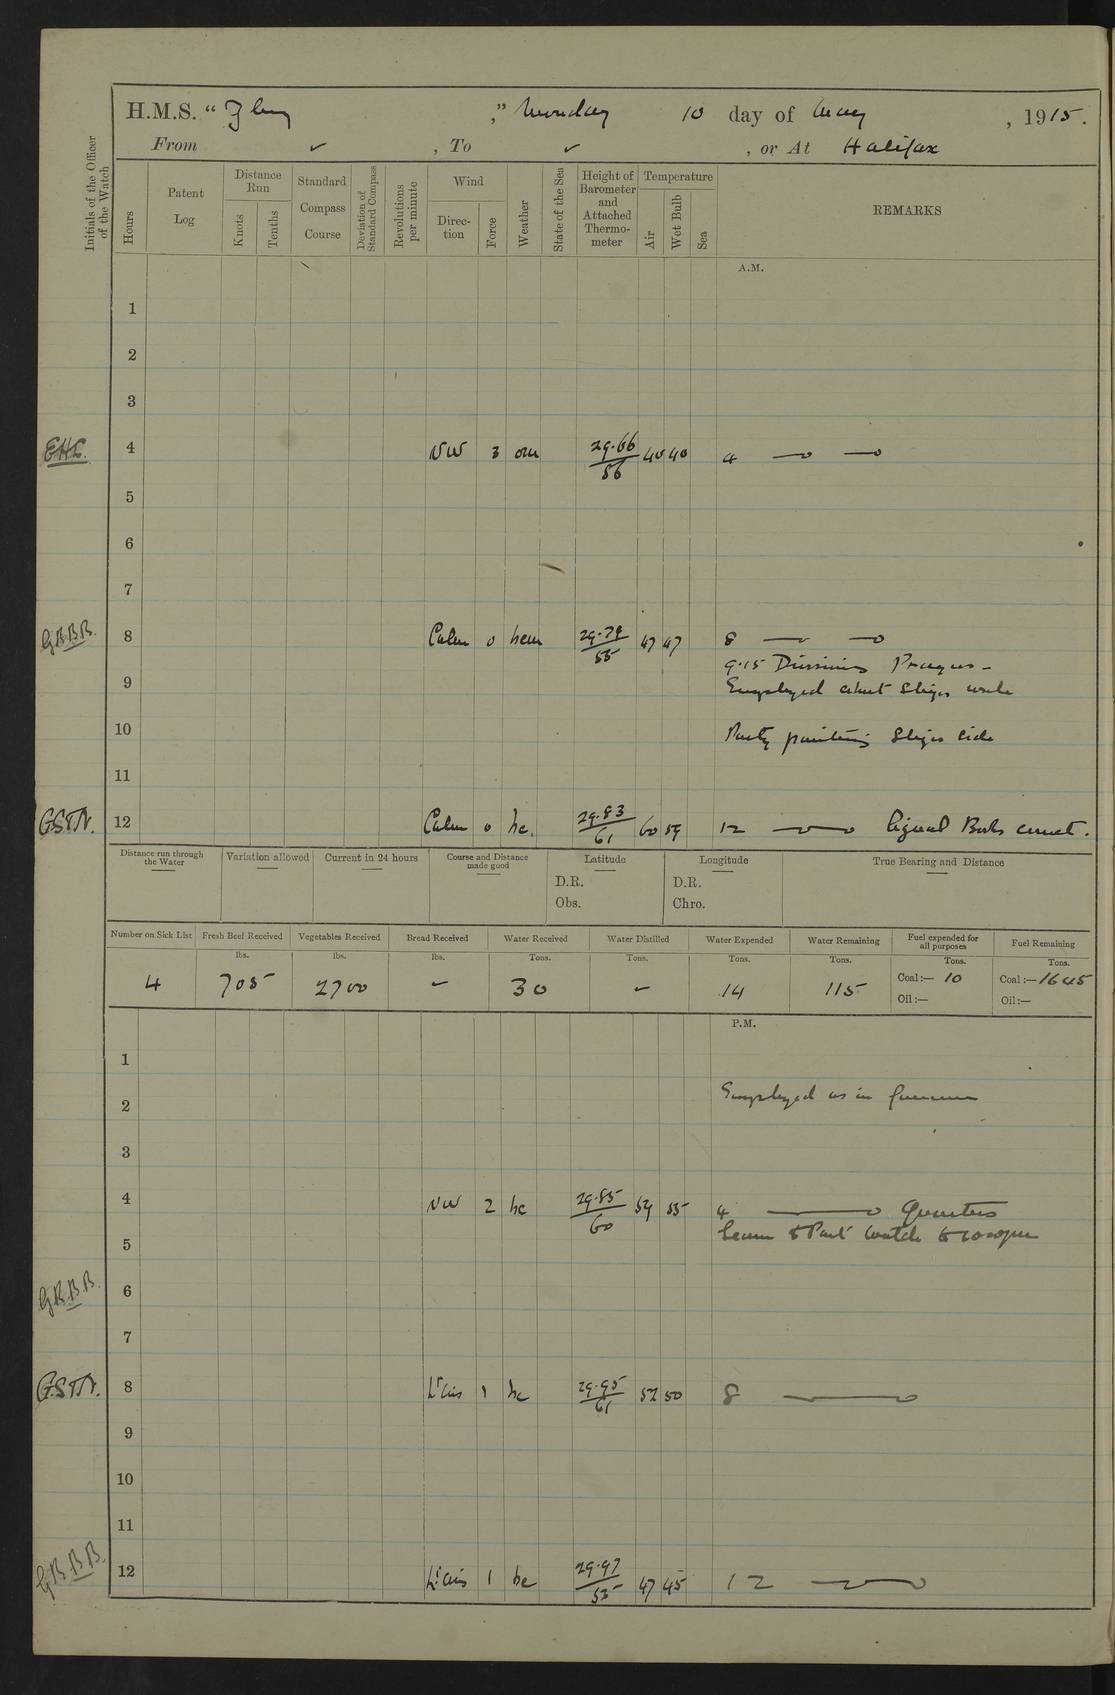 H.M.S. " ," Monday 10 day of May , 1915.
From ✓ , To ✓ , or At Halifax
Initials of the Officer of the Watch
Hours
Patent Log
Distance Run
Knots
Tenths
Standard Compass Course
Deviation of Standard Compass
Revolutions per minute
Wind
Direction
Force
Weather
State of the Sea
Height of Barometer and Attached Thermometer
Temperature
Air
Wet Bulb
Sea
REMARKS
A.M.
1
2
3
4 NW 3 29.66/56 40 40 4
5
6
7
G.B.B.B. 8 Calm 0 55 47 47 8
9.15 Divisions Prayers -
9 Employed about Ships work
10 Party painting Ships side
11
12 Calm 0 bc. 29.83/61 60 59 12 Signal Books correct.
Distance run through the Water
Variation allowed
Current in 24 hours
Course and Distance made good
Latitude
D.R.
Obs.
Longitude
D.R.
Chro.
True Bearing and Distance
Number on Sick List Fresh Beef Received Vegetables Received Bread Received Water Received Water Distilled Water Expended Water Remaining Fuel expended for all purposes Fuel Remaining
lbs. lbs. lbs. Tons. Tons. Tons. Tons. Tons. Tons.
4 705 2700 - 30 - 14 115 Coal:— 10 Coal:— 1645
Oil:— Oil:—
P.M.
1
2 Employed as in forenoon
3
4 NW 2 bc 29.85/60 59 55 4 Quarters
Leave to Part Watch to
5
G.B.B.B. 6
7
8 Lt airs 1 bc 29.95/61 52 50 8
9
10
11
G.B.B.B. 12 Lt airs 1 bc 29.97/55 47 45 12